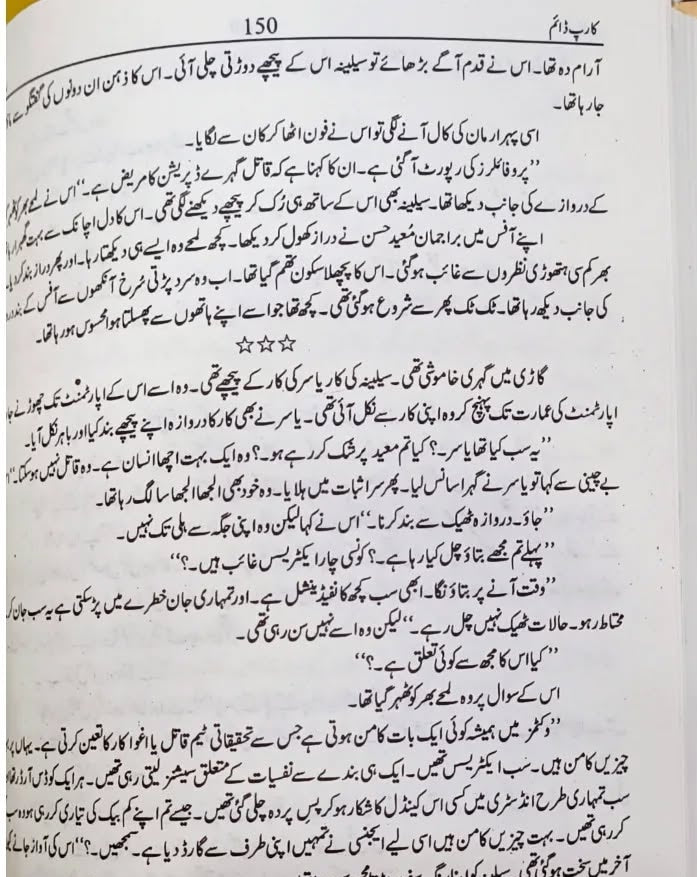 کارپ ڈائم
150
آرام دہ تھا۔ اس نے قدم آگے بڑھائے تو سیلینہ اس کے پیچھے دوڑتی چلی آئی۔ اس کا ذہن ان دونوں کی گفتگو سے
جا رہا تھا۔
اسی پہر ارمان کی کال آنے لگی تو اس نے فون اٹھا کر کان سے لگایا۔
’’پروفائلرز کی رپورٹ آ گئی ہے۔ ان کا کہنا ہے کہ قاتل گہرے ڈپریشن کا مریض ہے۔‘‘ اس نے لمحے بھر کو
کے دروازے کی جانب دیکھا تھا۔ سیلینہ بھی اس کے ساتھ ہی رُک کر پیچھے دیکھنے لگی تھی۔ اس کا دل اچانک سے بہت
اپنے آفس میں براجمان مُعید حسن نے دراز کھول کر دیکھا۔ کچھ لمحے وہ ایسے ہی دیکھتا رہا۔ اور پھر دراز بند کر دیا۔
بھر کم سی ہتھوڑی نظروں سے غائب ہو گئی۔ اس کا پچھلا سکون تھم گیا تھا۔ اب وہ سرد پڑتی سُرخ آنکھوں سے آفس کے بند
کی جانب دیکھ رہا تھا۔ ٹک ٹک پھر سے شروع ہو گئی تھی۔ کچھ تھا جو اسے اپنے ہاتھوں سے پھسلتا ہوا محسوس ہو رہا تھا۔
☆☆☆
گاڑی میں گہری خاموشی تھی۔ سیلینہ کی کار یاسر کی کار کے پیچھے تھی۔ وہ اسے اس کے اپارٹمنٹ تک چھوڑنے
اپارٹمنٹ کی عمارت تک پہنچ کر وہ اپنی کار سے نکل آئی تھی۔ یاسر نے بھی کار کا دروازہ اپنے پیچھے بند کیا اور باہر نکل آیا۔
’’یہ سب کیا تھا یاسر۔؟ کیا تم معید پر شک کر رہے ہو۔؟ وہ ایک بہت اچھا انسان ہے۔ وہ قاتل نہیں ہو سکتا۔‘‘
بے چینی سے کہا تو یاسر نے گہرا سانس لیا۔ پھر سر اثبات میں ہلایا۔ وہ خود بھی الجھا الجھا سا لگ رہا تھا۔
’’جاؤ۔ دروازہ ٹھیک سے بند کرنا۔‘‘ اس نے کہا لیکن وہ اپنی جگہ سے ہلی تک نہیں۔
’’پہلے تم مجھے بتاؤ چل کیا رہا ہے۔؟ کونسی چار ایکٹریسس غائب ہیں۔؟‘‘
’’وقت آنے پر بتاؤ نگا۔ ابھی سب کچھ کانفیڈینشل ہے۔ اور تمہاری جان خطرے میں پڑ سکتی ہے یہ سب جان
محتاط رہو۔ حالات ٹھیک نہیں چل رہے۔‘‘ لیکن وہ اسے نہیں سن رہی تھی۔
’’کیا اس کا مجھ سے کوئی تعلق ہے۔؟‘‘
اس کے سوال پر وہ لمحے بھر کو ٹھہر گیا تھا۔
’’وکٹمز میں ہمیشہ کوئی ایک بات کامن ہوتی ہے جس سے تحقیقاتی ٹیم قاتل یا اغوا کار کا تعین کرتی ہے۔ یہاں
چیزیں کامن ہیں۔ سب ایکٹریسس تھیں۔ ایک ہی بندے سے نفسیات کے متعلق سیشنز لیتی رہی تھیں۔ ہر ایک کو ڈس آرڈر
سب تمہاری طرح انڈسٹری میں کسی اسکینڈل کا شکار ہو کر پسِ پردہ چلی گئی تھیں۔ جیسے تم اپنے کم بیک کی تیاری کر رہی ہو وہ سب
کر رہی تھیں۔ بہت چیزیں کامن ہیں اسی لیے ایجنسی نے تمہیں اپنی طرف سے گارڈ دیا ہے۔ سمجھیں۔؟‘‘ اس کی آواز جانے
آخر میں سخت ہو گئی تھی۔ سیلینہ کو اپنا